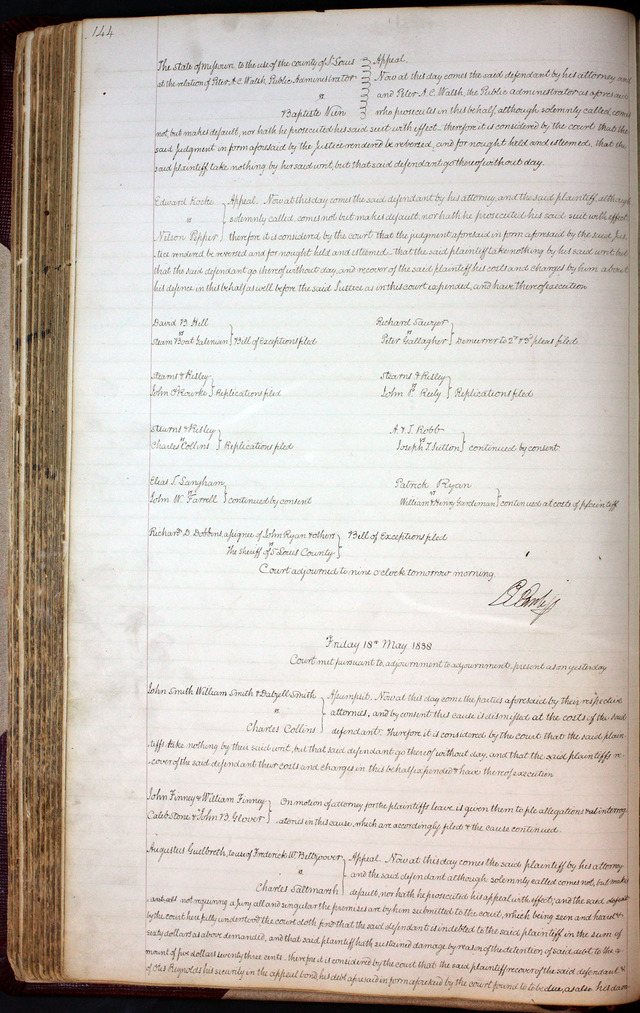 144
The State of Missouri, to the use of the county of St Louis Appeal.
at the relation of Peter A.C. Walsh, Public Administrator Now at this day comes the said defendant by his attorney and
vs and Peter A.C. Walsh, the Public administrator as aforesaid
Baptiste Nuin who prosecutes in this behalf, although solemnly called, comes
not, but makes default, nor hath he prosecuted his said suit with effect. therefore it is considered by the court that the
said judgment in form aforesaid by the Justice rendered be reversed, and for nought held and esteemed, that the
said plaintiff take nothing by his said writ, but that said defendant go thereof without day.
Edward Kocke Appeal. Now at this day comes the said defendant by his attorney, and the said plaintiff, although
vs solemnly called, comes not but makes default, nor hath he prosecuted his said suit with effect
Nilson Pepper therefore it is considered by the court that the judgment aforesaid in form aforesaid by the said Jus-
tice rendered be reversed and for nought held and esteemed. that the said plaintiff take nothing by his said writ but
that the said defendant go thereof without day, and recover of the said plaintiff his costs and charges by him about
his defence in this behalf as well before the said Justice as in this court expended, and have thereof execution
David B. Hill
vs
Steam Boat Galenian Bill of Exceptions filed
Richard Sawyer
vs
Peter Gallagher Demurrer to 2d & 3d pleas filed.
Stearns & Risley
vs
John O'Rourke Replications filed
Stearns & Risley
vs
John P. Reily Replications filed.
Stearns & Risley
vs
Charles Collins Replications filed
A & J Robb
vs
Joseph T Sutton continued by consent.
Elias T. Langham
vs
John W. Farrell continued by consent
Patrick Ryan
vs
William & Henry Gardeman continued at costs of plaintiff
Richard D. Dobbins, assignee of John Ryan & others Bill of Exceptions filed
vs
The Sheriff of St Louis County
Court adjourned to nine o'clock tomorrow morning.
Friday 18th May 1838
Court met pursuant to adjournment to adjournment, present as on yesterday
John Smith William Smith & Dalzell Smith Assumpsit. Now at this day come the parties aforesaid by their respective
vs attornies, and by consent this cause is dismissed at the costs of the said
Charles Collins defendant. Therefore it is considered by the court that the said plain-
tiffs take nothing by their said writ, but that said defendant go thereof without day, and that the said plaintiffs re-
cover of the said defendant their costs and charges in this behalf expended & have thereof execution
John Finney & William Finney On motion of attorney for the plaintiffs leave is given them to file allegations & interrog-
Caleb Stone & John B. Glover atories in this cause, which are accordingly filed & the cause continued.
Augustus Guelbreth, to use of Frederick W. Beltzhoover Appeal. Now at this day comes the said plaintiff by his attorney
vs and the said defendant although solemnly called comes not, but makes
Charles Saltmarsh default, nor hath he prosecuted his appeal with effect; and the said defend-
ant not requiring a Jury all and singular the premises are by him submitted to the court, which being seen and heard &
by the court here fully understood the court doth find that the said defendant is indebted to the said plaintiff in the sum of
sixty dollars as above demanded, and that said plaintiff hath sustained damage by reason of the detention of said debt to the a-
mount of five dollars seventy three cents. therefore it is considered by the court that the said plaintiff recover of the said defendant &
of Otis Reynolds his security in the appeal bond, his debt aforesaid in form aforesaid by the court found to be due, as also his dam-